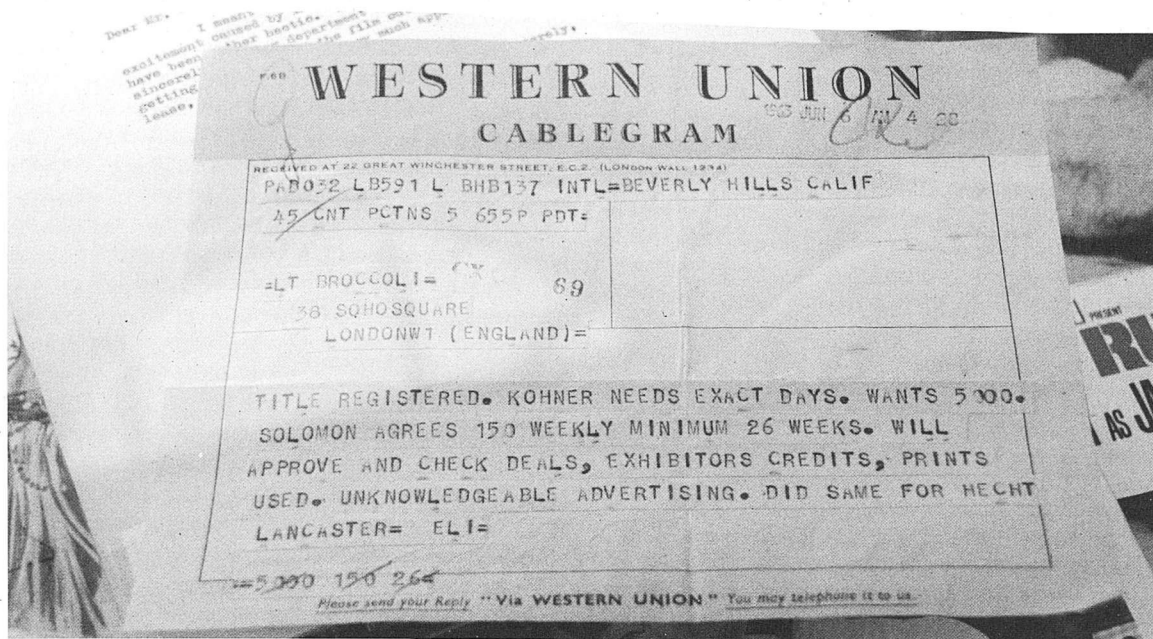 Dear Mr.
I meant
excitement caused by
have been rather hectic.
sincerely department
getting the film
lease, much app
rely.
F.6B
WESTERN UNION
CABLEGRAM
1963 JUN 6 AM 4 28
RECEIVED AT 22 GREAT WINCHESTER STREET, E.C.2. (LONDON WALL 1234)
PAB032 LB591 L BHB137 INTL=BEVERLY HILLS CALIF
45 CNT PCTNS 5 655P PDT=
=LT BROCCOLI= CX 69
38 SOHOSQUARE
LONDONW1 (ENGLAND)=
TITLE REGISTERED. KOHNER NEEDS EXACT DAYS. WANTS 5000.
SOLOMON AGREES 150 WEEKLY MINIMUM 26 WEEKS. WILL
APPROVE AND CHECK DEALS, EXHIBITORS CREDITS, PRINTS
USED. UNKNOWLEDGEABLE ADVERTISING. DID SAME FOR HECHT
LANCASTER= ELI=
=5000 150 26=
Please send your Reply "Via WESTERN UNION" You may telephone it to us.
PRESENT
RU
AS JA